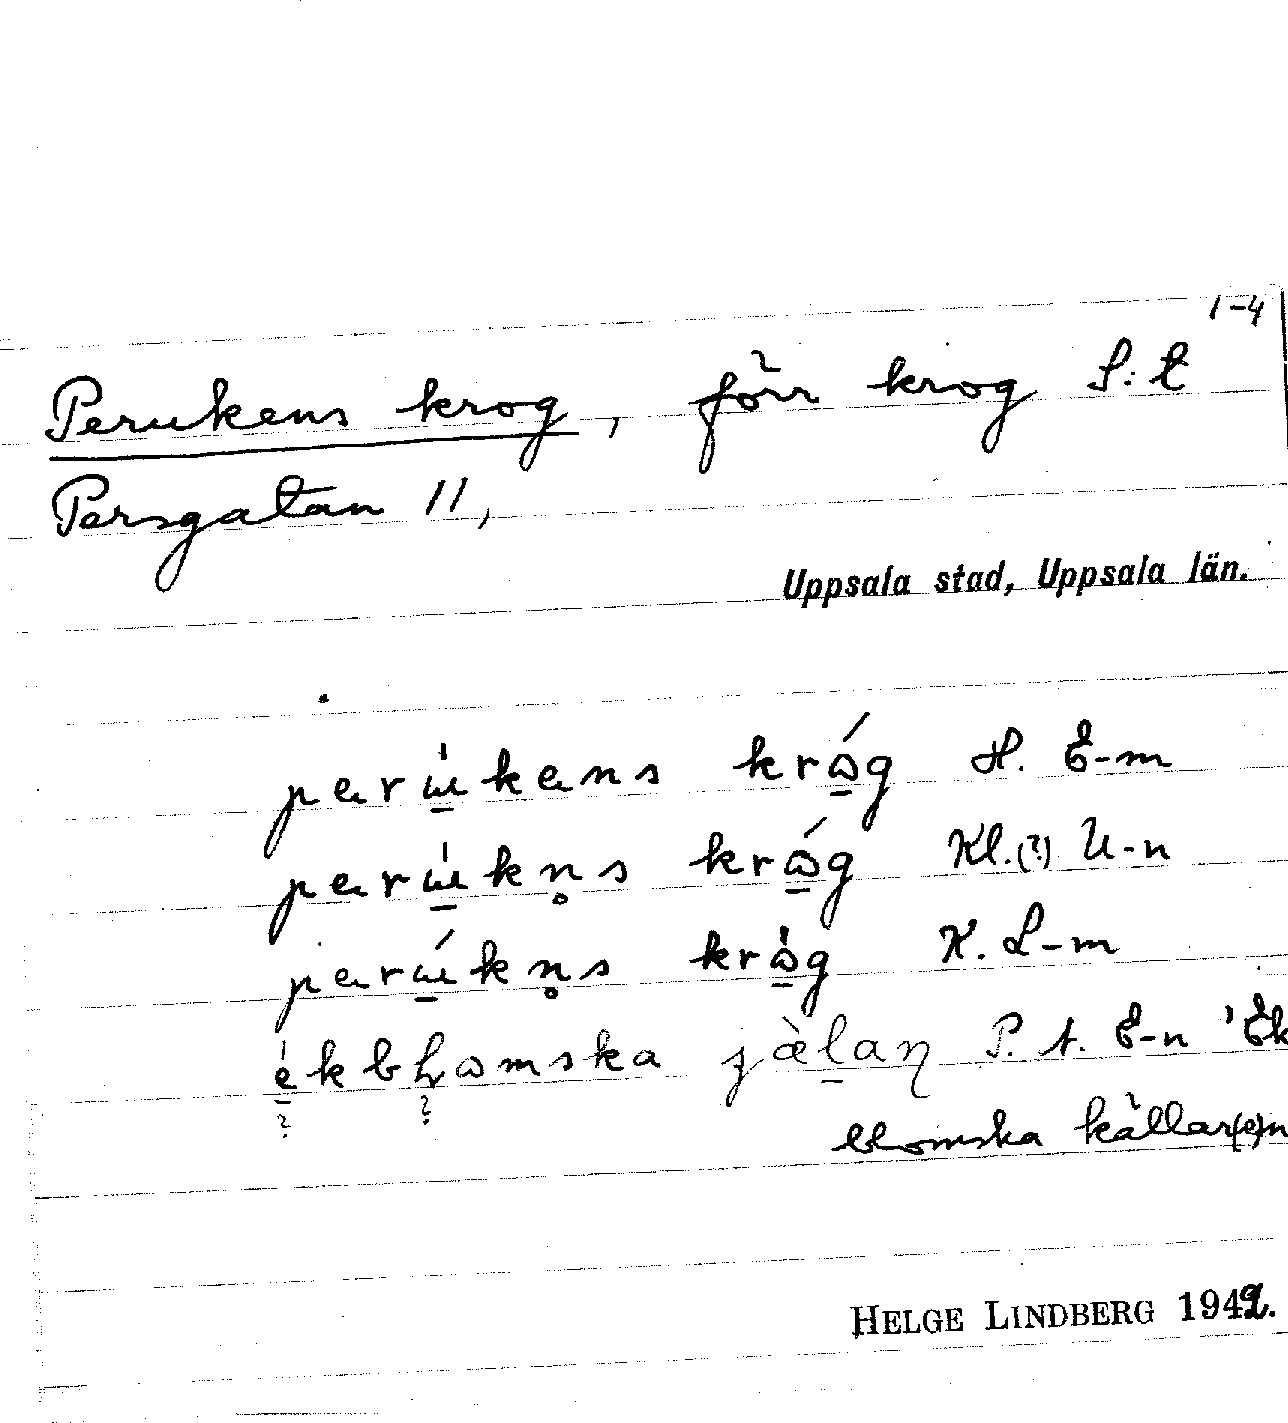 1-4
Perukens krog, förr krog S:t
Persgatan 11,
Uppsala stad, Uppsala län.
perɯ́kens krɷ́g H. E-m
perɯ́kn̥s krɷ́g Kl.(?) U-n
perɯ́kn̥s krɷ́g K. L-m
P. A. E-n 'Ek
blomska källar(e)n
HELGE LINDBERG 1942.